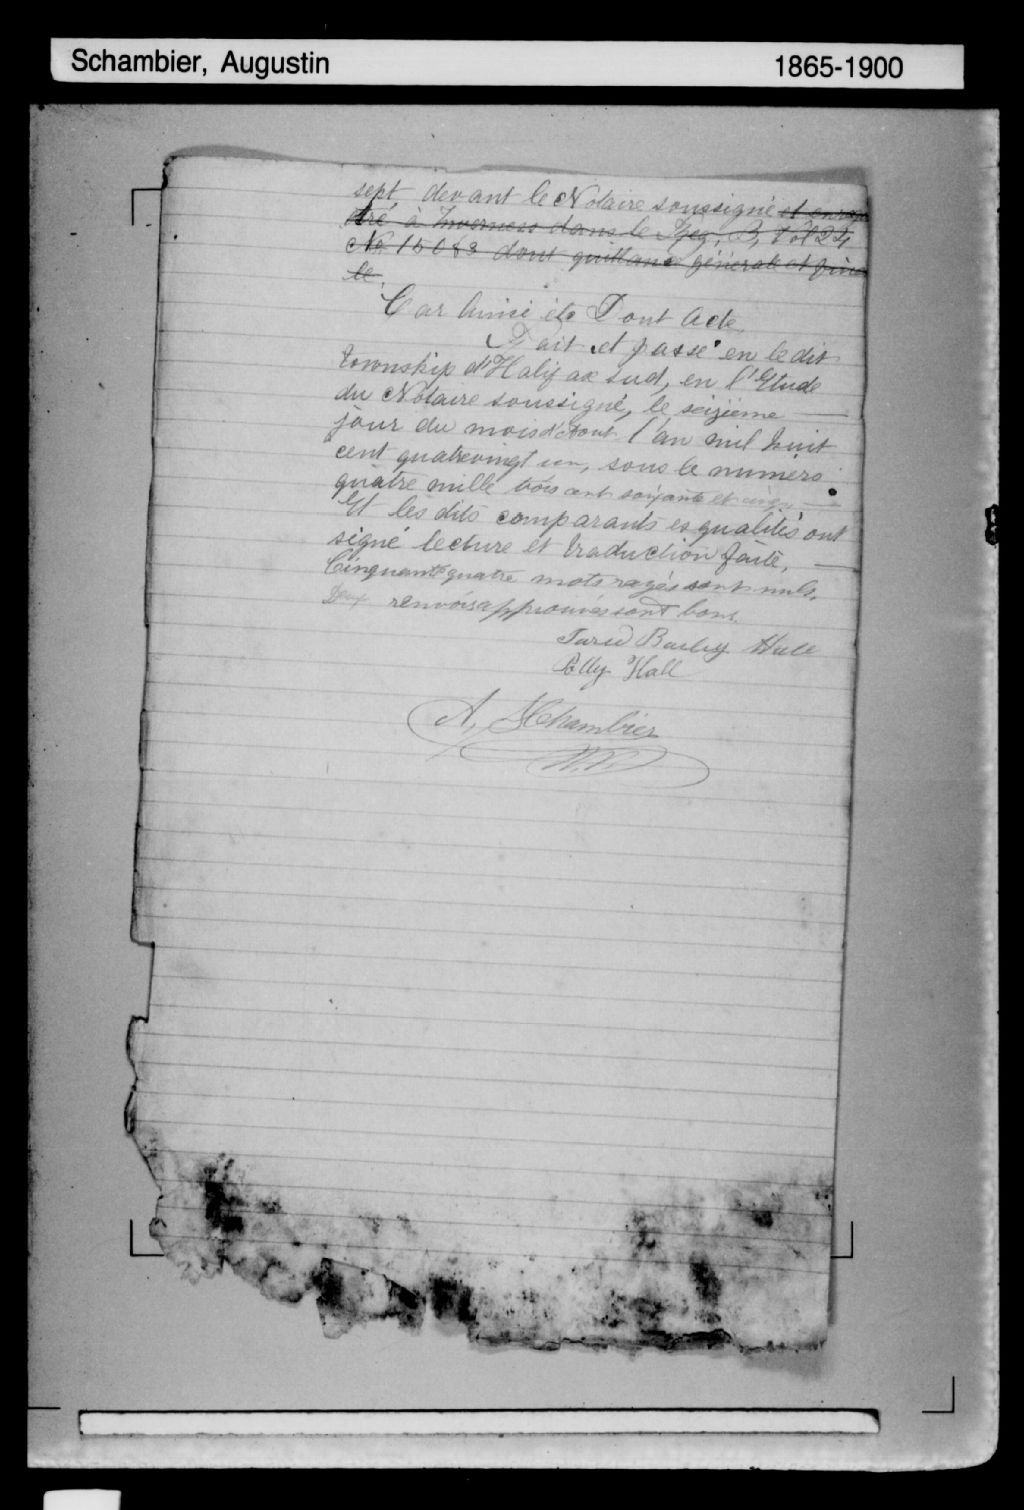 Schambier, Augustin 1865-1900
sept, devant le Notaire soussigné et enregis
tré à Inverness dans le Reg. B, Vol 24
No. 15083 dont quittance générale et fina
le.
Car Ainsi etc Dont Acte,
Fait et passé en le dit
township d'Halifax sud, en l'Etude
du Notaire soussigné, le seizième
jour du mois d'Aout l'an mil huit
cent quatrevingt un, sous le numéro
quatre mille trois cent soixante et
Et les dits comparants es qualités ont
signé lecture et traduction faite,
Cinquante quatre mots rayés sont nuls.
Deux renvois approuvés sont bons.
Jared Bailey Hall
Polly Hall
A. Schambier
N.P.